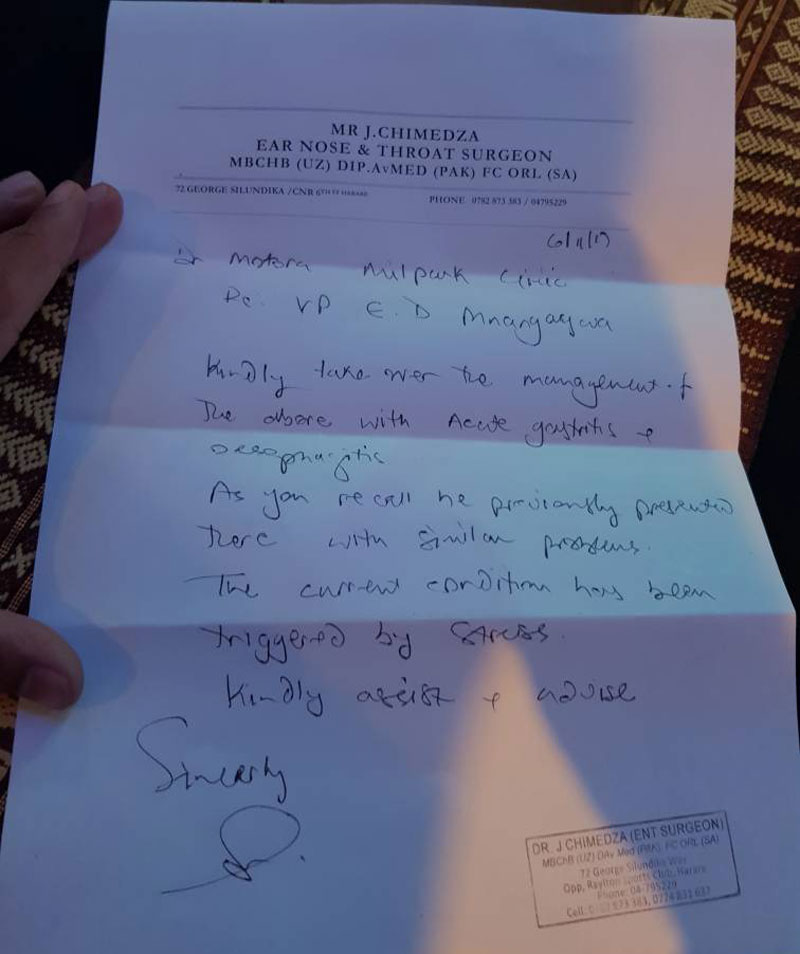 MR J.CHIMEDZA
EAR NOSE & THROAT SURGEON
MBCHB (UZ) DIP.AvMED (PAK) FC ORL (SA)
72 GEORGE SILUNDIKA /CNR 6TH ST HARARE
PHONE 0782 873 383 / 04795229
6/11/17
Dr Matara Milpark Clinic
Re: VP E.D Mnangagwa
Kindly take over the management of
the above with Acute gastritis +
oesophagitis
As you recall he previously presented
there with similar problems.
The current condition has been
triggered by stress.
Kindly assist + advise
Sincerly
DR. J CHIMEDZA (ENT SURGEON)
MBChB (UZ) DAv Med (PAK) FC ORL (SA)
72 George Silundika
Opp. Raylton Sports Club, Harare
Phone: 04-795229
Cell: 873 383,